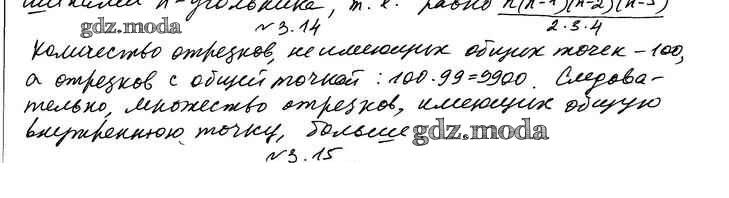 n-угольника, т.е. равно n(n-1)(n-2)(n-3)
2·3·4
gdz.moda
№3.14
Количество отрезков, не имеющих общих точек - 100,
а отрезков с общей точкой: 100·99=9900. Следова-
тельно, множество отрезков, имеющих общую
внутреннюю точку, больше
gdz.moda
№3.15